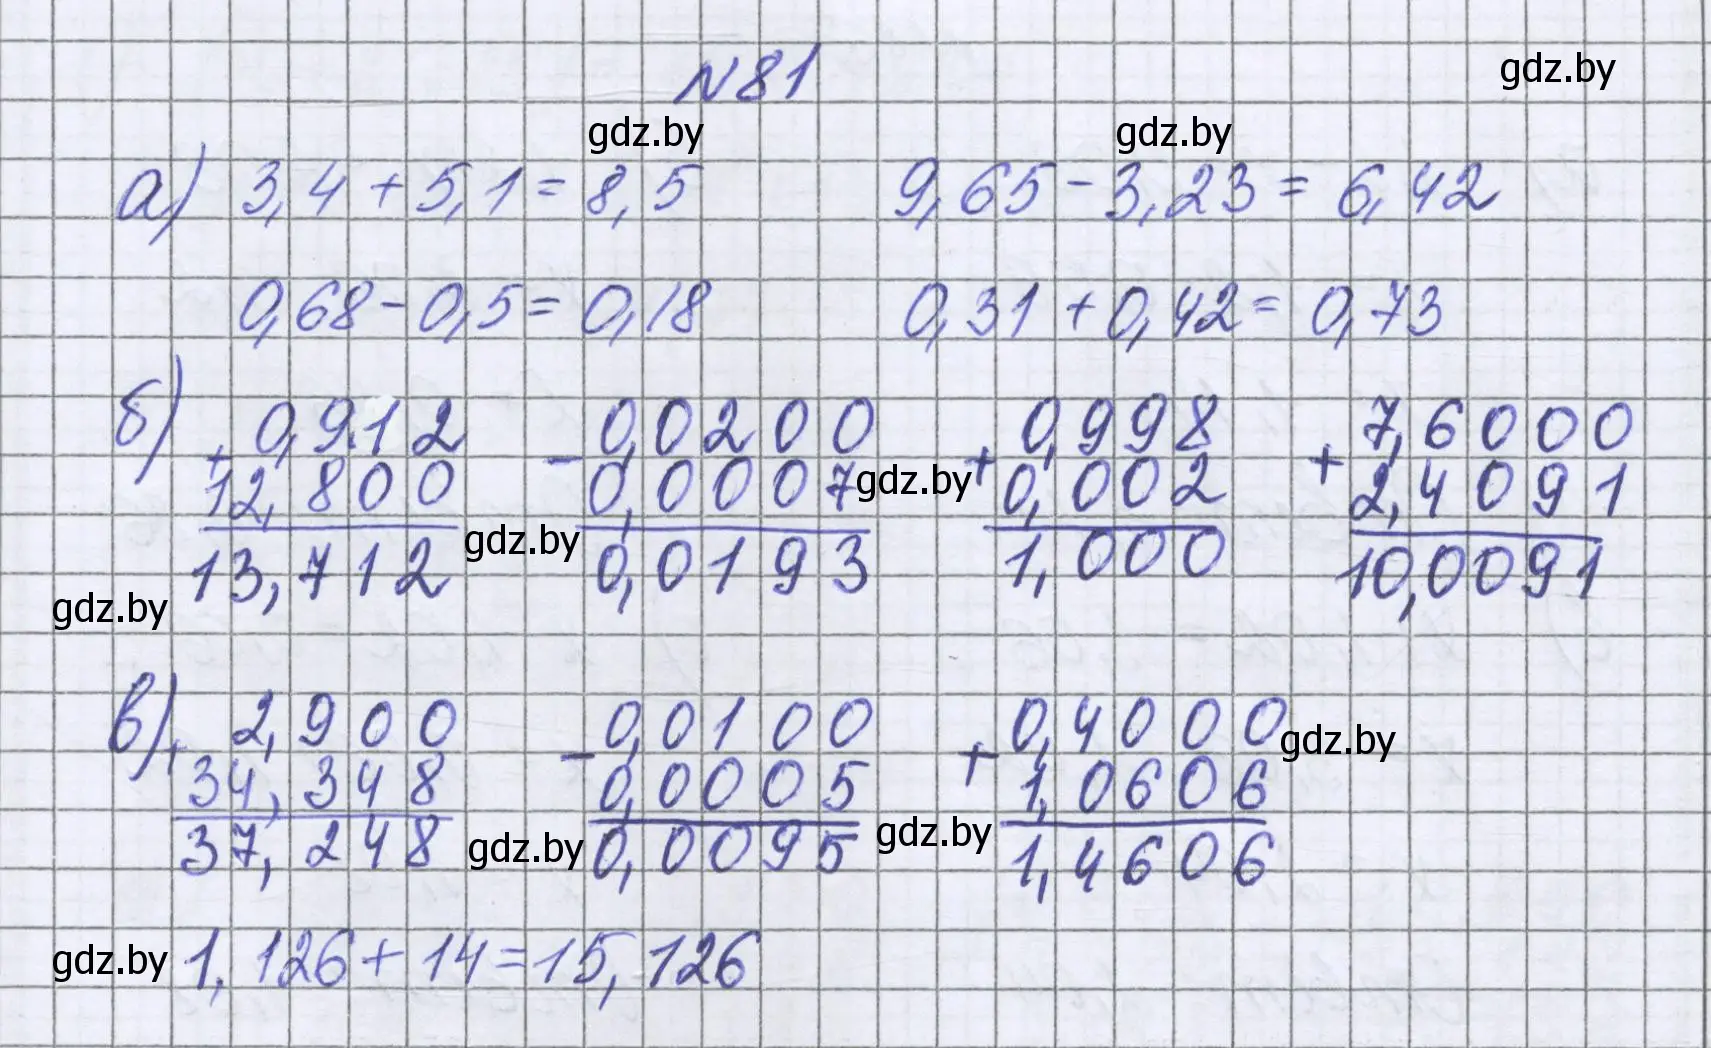 N81
gdz.by
gdz.by gdz.by
а) 3,4 + 5,1 = 8,5 9,65 - 3,23 = 6,42
0,68 - 0,5 = 0,18 0,31 + 0,42 = 0,73
б) + 0,912 - 0,0200 + 0,998 + 7,6000
12,800 0,0007 gdz.by 0,002 2,4091
13,712 gdz.by 0,0193 1,000 10,0091
gdz.by
в) + 2,900 - 0,0100 + 0,4000 gdz.by
34,348 0,0005 1,0606
37,248 gdz.by 0,0095 gdz.by 1,4606
gdz.by 1,126 + 14 = 15,126